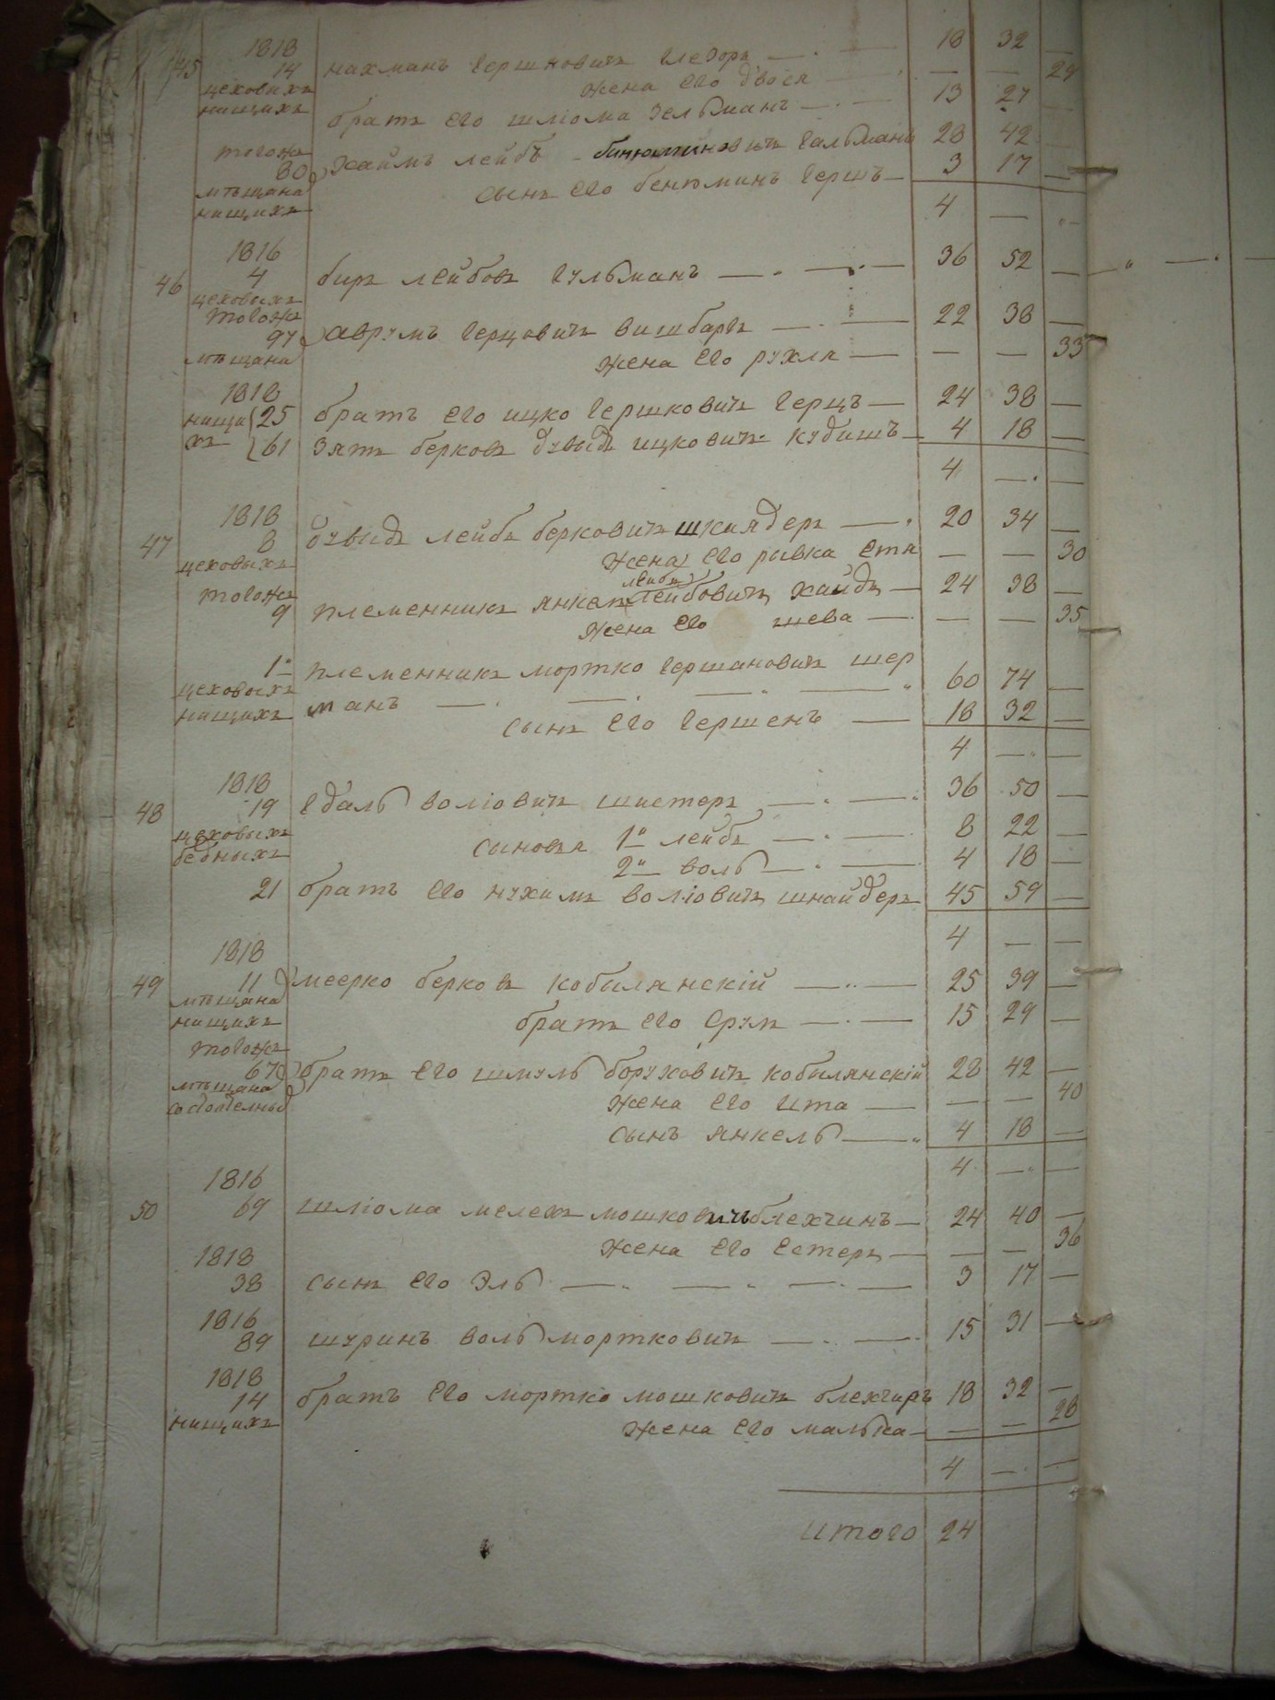 1818
45 14 Нахманъ Гершковичъ Гледоръ 18 32 —
цеховыхъ Жена Его двося — — 24
нищихъ братъ Его шліома Зельманъ 13 27 —
тогожъ
80 Хаимъ лейбъ биньюминовичъ Гальманъ 28 42 —
мѣщана сынъ Его беньюминъ Гершъ 3 17 —
нищихъ 4 —
1816
46 4 биръ лейбовъ Гульманъ 36 52 —
цеховыхъ
тогожъ
97 Аврумъ Герцовичъ вишбаръ 22 38 —
мѣщана Жена Его рухля — — 33
1818
нищи 25 братъ Его ицко Гершковичъ Герцъ 24 38 —
хъ 61 Зять берковъ дувидъ ицковичъ кудишъ 4 18 —
4 — —
1818
47 8 дувидъ лейбъ берковичъ шкилдеръ 20 34 —
цеховыхъ Жена Его ривка Етя — — 30
лейбъ
тогожъ
9 племенникъ янкель лейбовичъ хаидъ 24 38 —
Жена Его гнева — — 35
10 племенникъ мортко Гершановичъ шер
цеховыхъ
нищихъ манъ 60 74 —
сынъ Его Гершенъ 18 32 —
4 — —
1818
48 19 Едаль воліовичъ шистеръ 36 50 —
цеховыхъ сыновья 1й лейбъ 8 22 —
бедныхъ 2й воль 4 18 —
21 братъ Его нухимъ воліовичъ шнайдеръ 45 59 —
4 — —
1818
49 11 меерко берковъ кобылянскій 25 39 —
мѣщана
нищихъ братъ Его Срулъ 15 29 —
тогожъ
67 братъ Его шмуль боруховичъ кобылянскій 28 42 —
мѣщана Жена Его Ита — — 40
сынъ янкель 4 18 —
4 — —
1816
50 69 шліома мелехъ мошковичъ блехчинъ 24 40 —
Жена Его Естеръ — — 36
1818
38 сынъ Его Эль 3 17 —
1816
89 шуринъ воль мортковичъ 15 31 —
1818
14 братъ Его мортко мошковичъ блехчиръ 18 32 —
нищихъ Жена Его малка — — 28
4 — —
итого 24